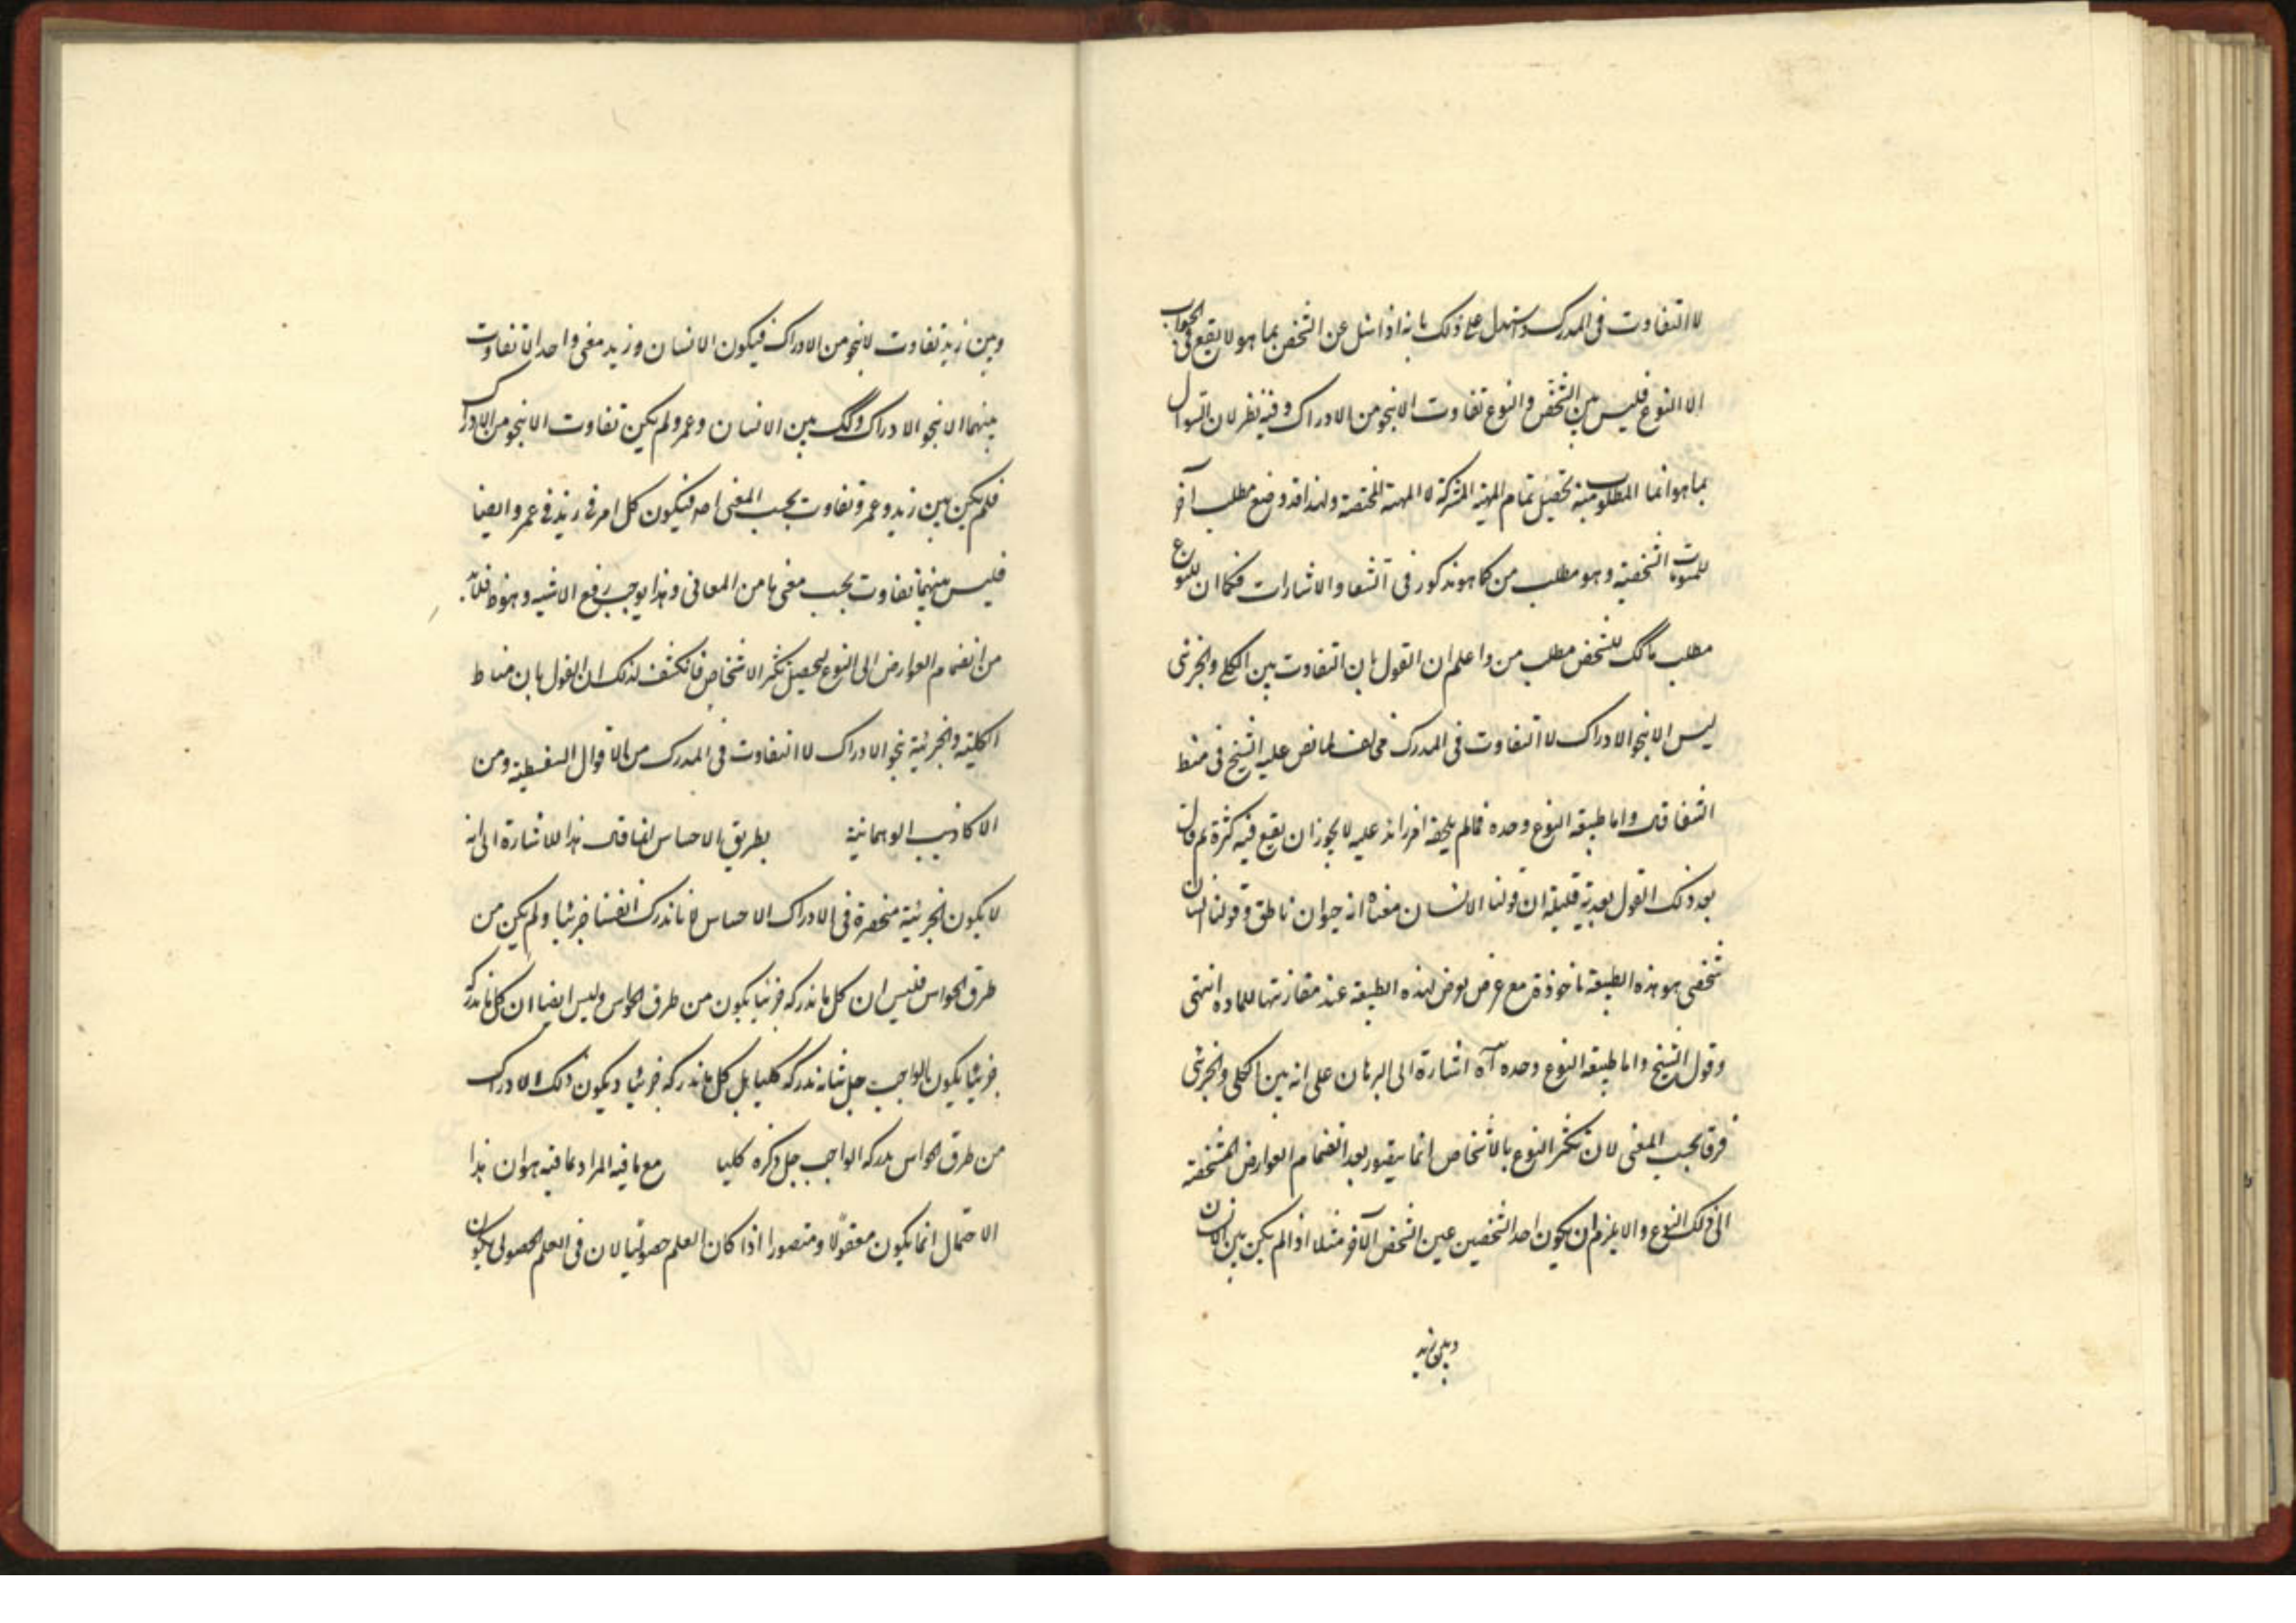 لا التفاوت فی المدرک واستدل علی ذلک بانه اذا سئل عن الشخص بما هو لا یقع فی الجواب
الا النوع فلیس بین الشخص والنوع تفاوت الا بنحو من الادراک وفیه نظر لان السوال
بما هو انما المطلوب منه تحصیل تمام المهیة المشترکة لا المهیة المختصة ولهذا قد وضع مطلب آخر
للهویات الشخصیة وهو مطلب من کما هو مذکور فی الشفا والاشارات فکما ان للنوع
مطلب ما کک للشخص مطلب من واعلم ان القول بان التفاوت بین الکلی والجزئی
لیس الا بنحو الادراک لا التفاوت فی المدرک مخالف لما نص علیه الشیخ فی منط
الشفا قال واما طبیعة النوع وحده فما لم یلحقه امر زائد علیه لا یجوز ان یقع فیه کثرة ثم قال
بعد ذلک القول بعدیة قلیلة ان قولنا الانسان معناه انه حیوان ناطق وقولنا انسان
شخصی هو هذه الطبیعة ماخوذة مع عرض یعرض لهذه الطبیعة عند مقارنتها للمادة انتهی
وقول الشیخ واما طبیعة النوع وحده آه اشارة الی البرهان علی انه بین الکلی والجزئی
فرقا بحسب المعنی لان تکثر النوع بالاشخاص انما یتصور بعد انضمام العوارض المشخصة
الی ذلک النوع والا یلزم ان یکون احد الشخصین عین الشخص الآخر مثلا اذا لم یکن بین الانسان
وبین زید
وبین زید تفاوت الا بنحو من الادراک فیکون الانسان وزید معنی واحدا لا تفاوت
بینهما الا بنحو الادراک وکک بین الانسان وعمرو لم یکن تفاوت الا بنحو من الادراک
فلم یکن بین زید وعمرو تفاوت بحسب المعنی اصلا فیکون کل امر فی زید فی عمرو ایضا
فلیس بینهما تفاوت بحسب معنی ما من المعانی وهذا یوجب رفع الاثنینیة وهو ظ فلابد
من انضمام العوارض الی النوع لیحصل تکثر الاشخاص فانکشف لذلک ان القول بان مناط
الکلیة والجزئیة بنحو الادراک لا التفاوت فی المدرک من الاقوال السفسطیة ومن
الاکاذیب الوهمانیة بطریق الاحساس انما قال هذا للاشارة الی انه
لا یکون الجزئیة منحصرة فی الادراک الاحساس لانا ندرک انفسنا جزئیا ولم یکن من
طرق الحواس فلیس ان کل ما ندرکه جزئیا یکون من طرق الحواس ولیس ایضا ان کل ما ندرکه
جزئیا یکون الواجب جل شانه یدرکه کلیا بل کل ما ندرکه جزئیا ویکون ذلک الادراک
من طرق الحواس یدرکه الواجب جل ذکره کلیا مع ما فیه المراد بما فیه هو ان هذا
الاحتمال انما یکون معقولا ومتصورا اذا کان العلم حصولیا لان فی العلم الحصولی یکون